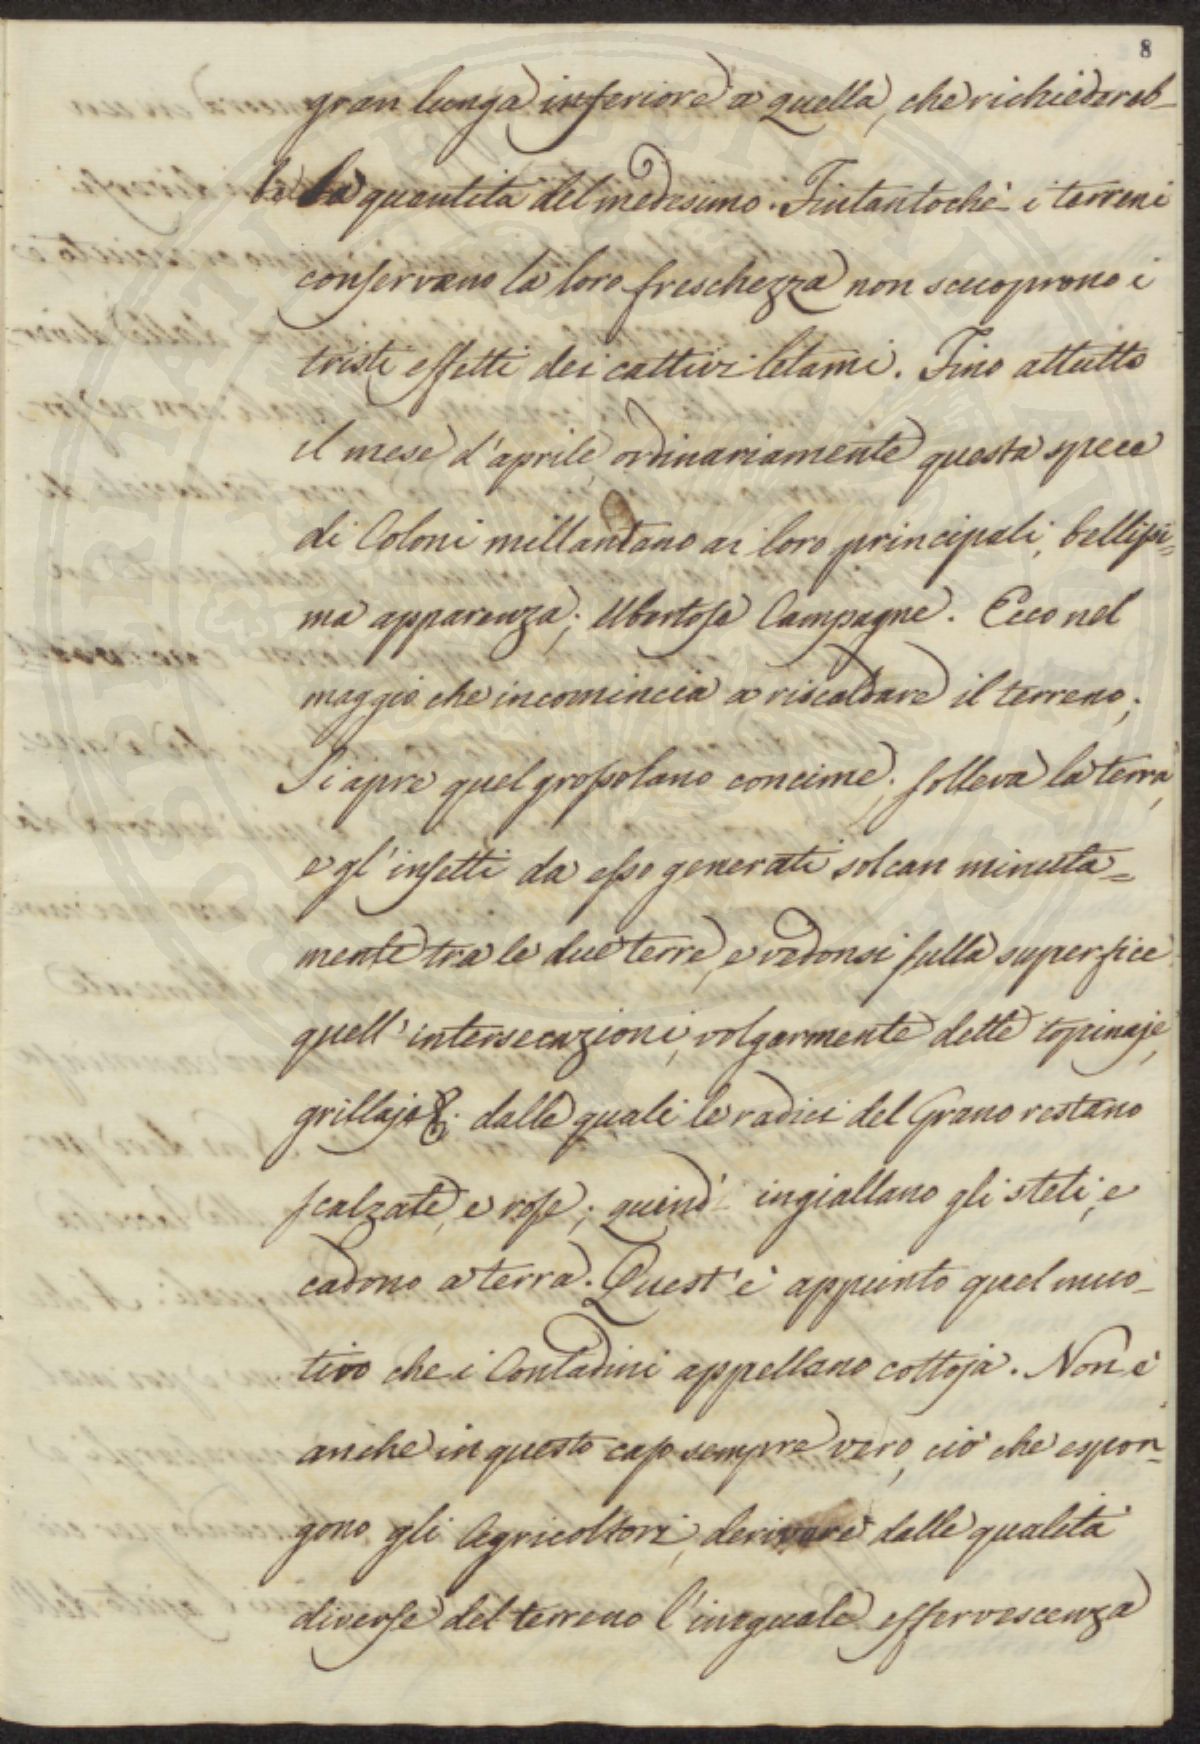 8
gran lunga inferiore a quella, che richiedereb-
be la quantità del medesimo. Fintantochè i terreni
conservano la loro freschezza non scuoprono i
tristi effetti dei cattivi letami. Fino attutto
il mese d'aprile, ordinariamente questa spece
di Coloni millantano ai loro principali, bellissi=
ma apparenza; Ubertose Campagne. Ecco nel
maggio che incomincia a riscaldare il terreno;
Si apre quel grossolano concime; solleva la terra,
e gl'insetti da esso generati solcan minuta=
mente tra le due terre, e vedonsi sulla superfice
quell'intersecazioni, volgarmente dette topinaje,
grillaje &. dalle quali le radici del Grano restano
scalzate, e rose; quindi ingiallano gli steli, e
cadono a terra. Quest'è appunto quel muo-
tivo che i Contadini appellano cottoja. Non è
anche in questo caso sempre vero, ciò che espon-
gono gli Agricoltori, derivare dalle qualità
diverse del terreno l'ineguale effervescenza